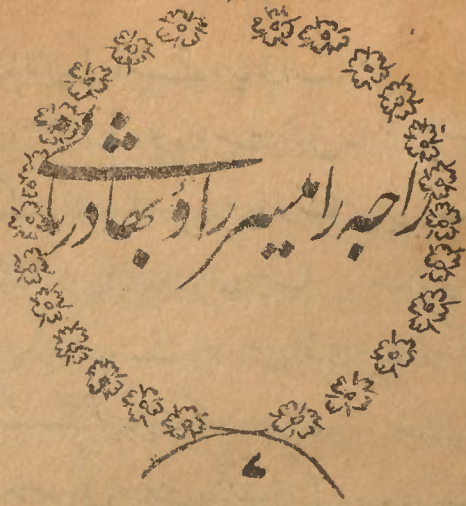 راجہ رامیسر راؤ بھادر ثانی